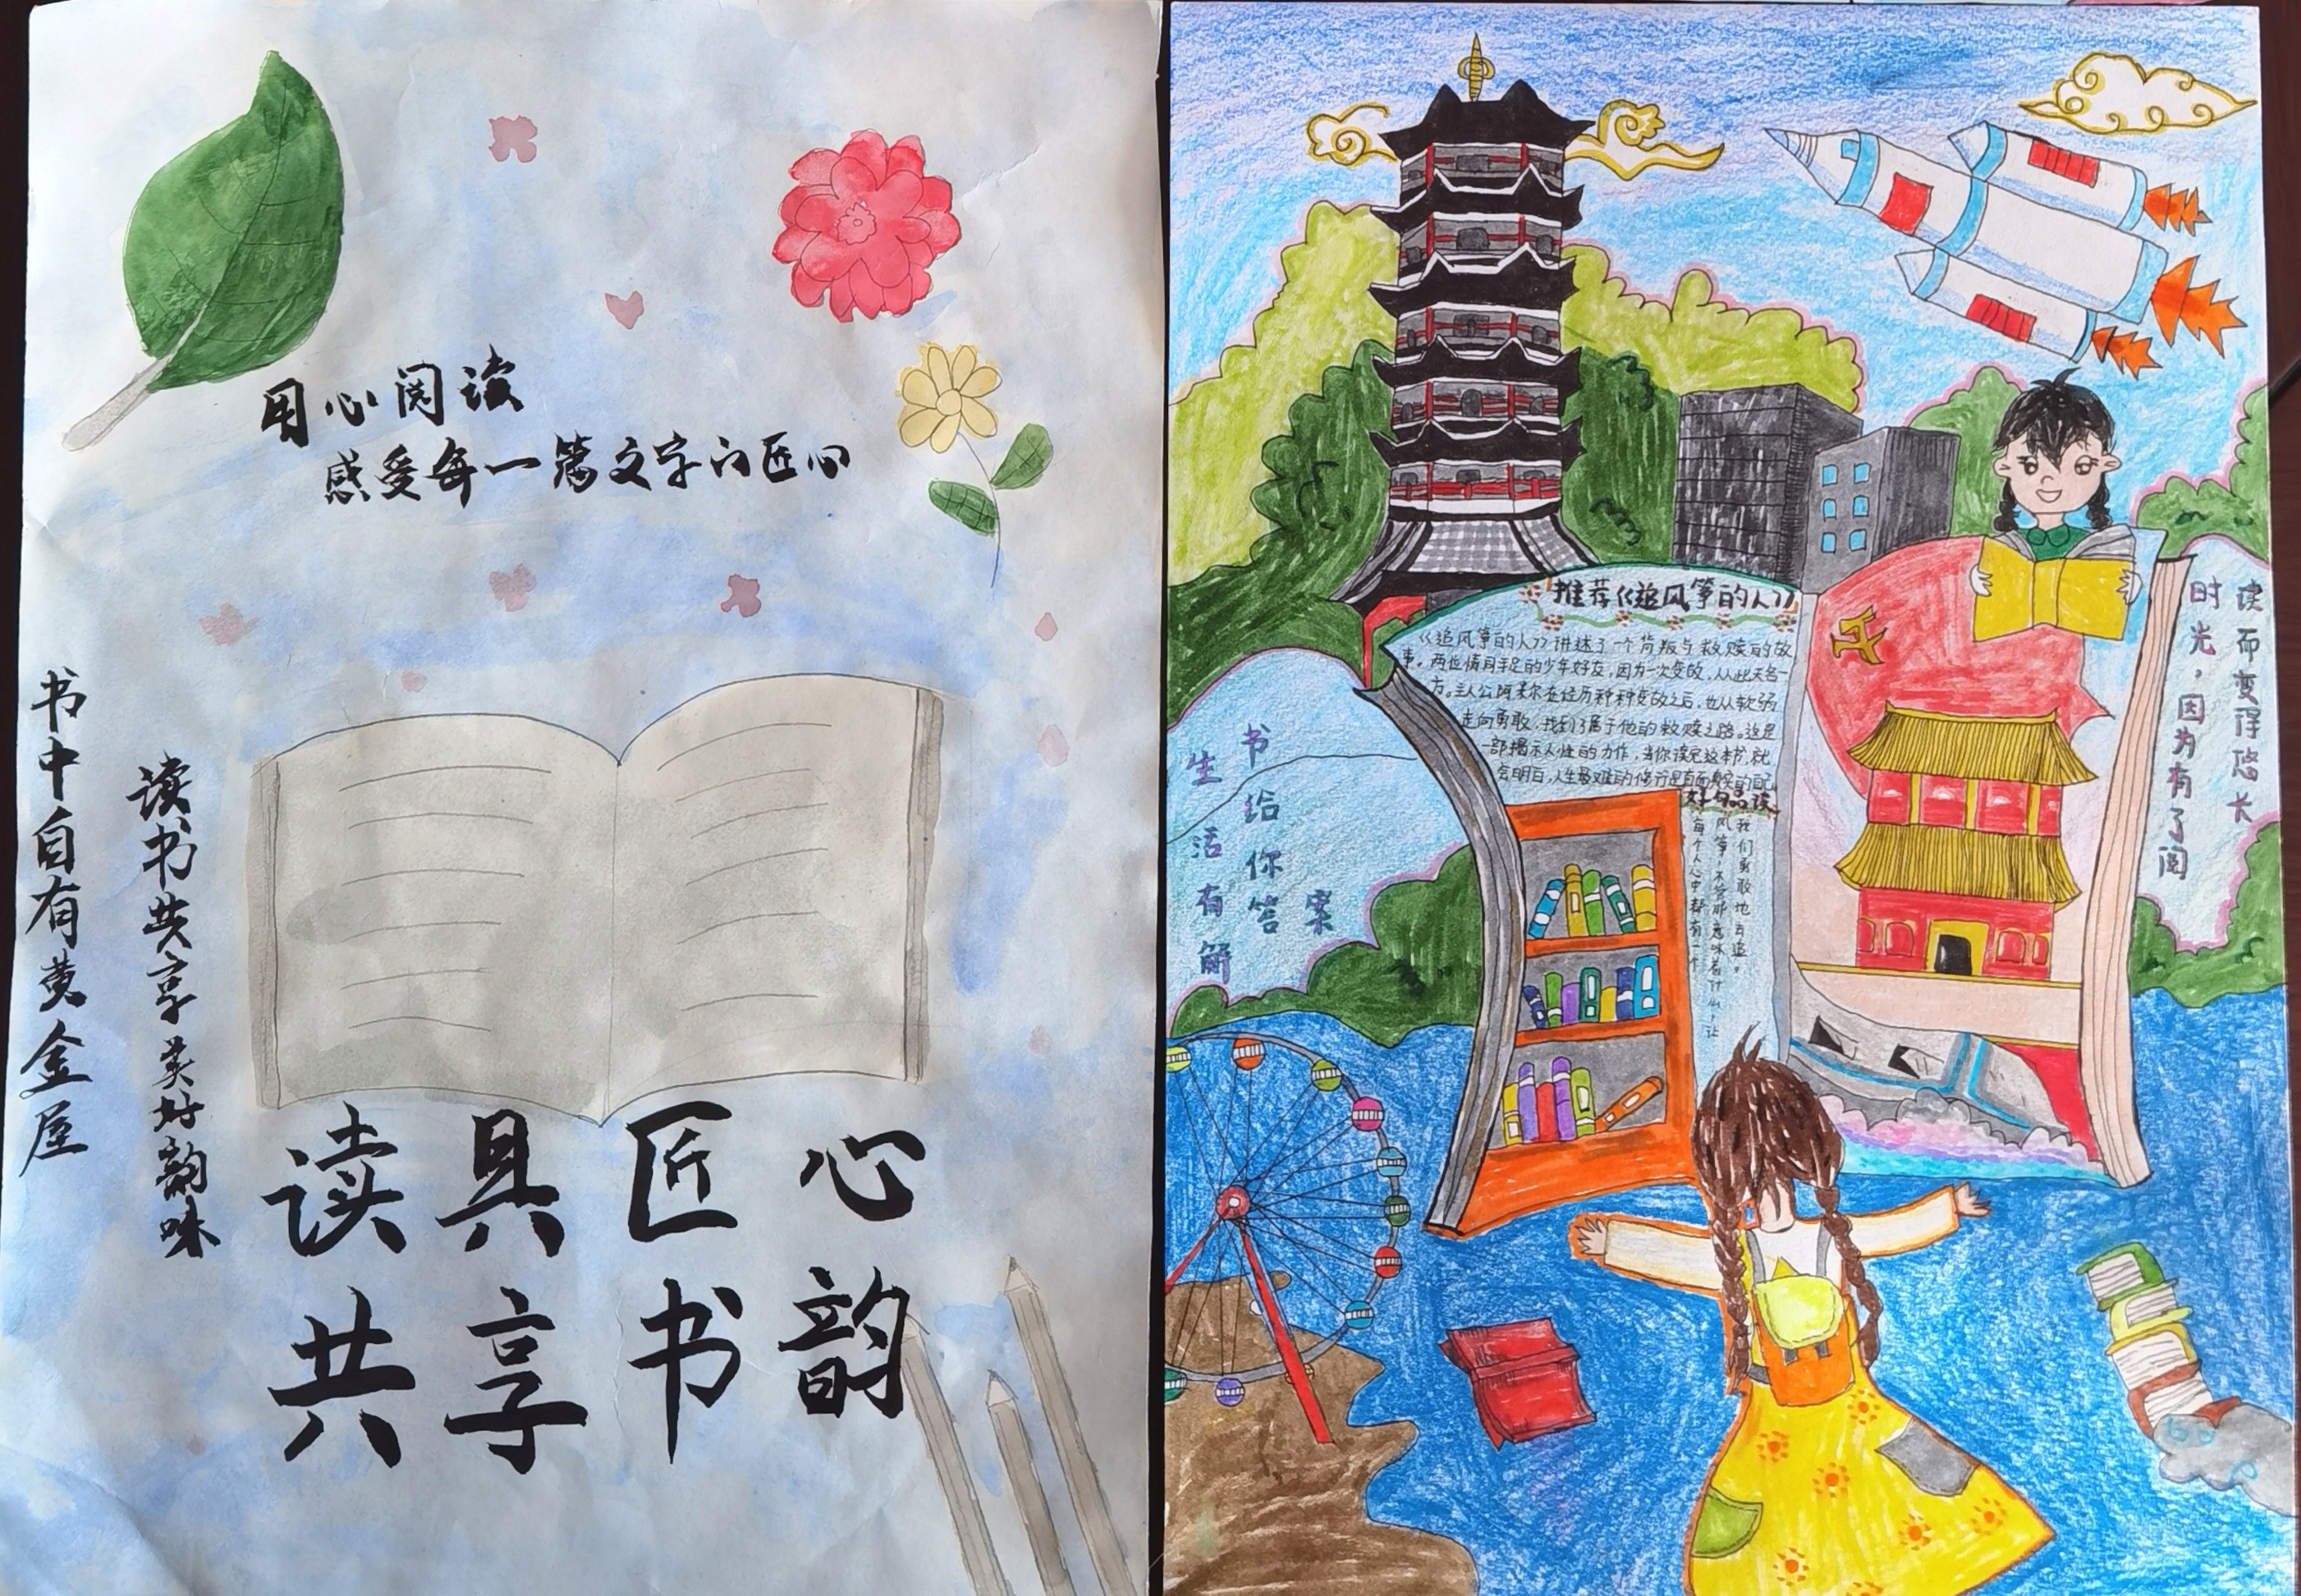 用心阅读
感受每一篇文字的匠心
书中自有黄金屋
读书共享美好韵味
读具匠心
共享书韵
推荐《追风筝的人》
《追风筝的人》讲述了一个背叛与救赎的故
事。两位情同手足的少年好友，因为一次变故，从此天各一
方。主人公阿米尔在经历种种变故之后，也从软弱
走向勇敢，找到了属于他的救赎之路。这是
一部揭示人性的力作，当你读完这本书，就
会明白，人生最难的修行是直面真实的自己
好句品读
每个人心中都有一个
风筝，不管那意味着什么，让
我们勇敢地去追。
生活有解
书给你答案
时光，因为有了阅
读而变得悠长